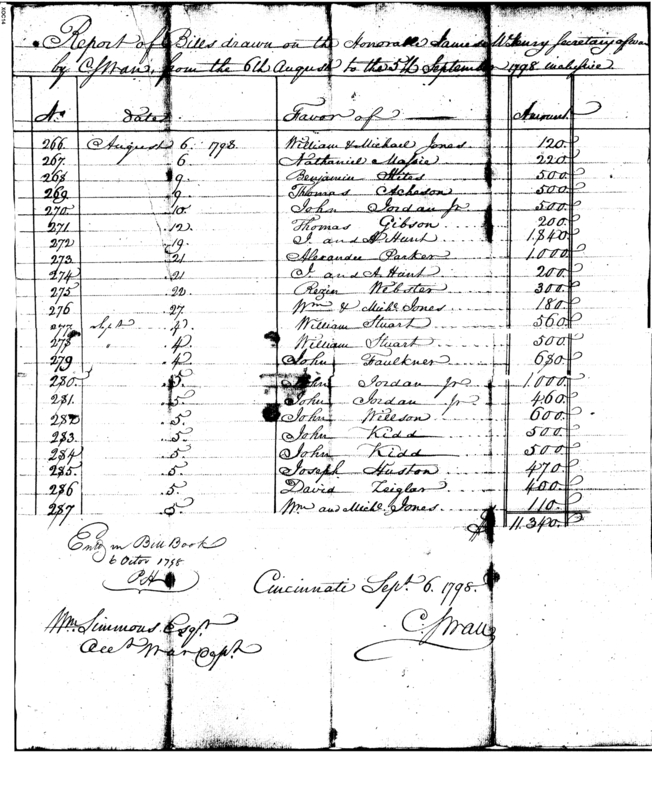 Report of Bills drawn on the Honorable James McHenry Secretary of War
by C Swan, from the 6th August to the 5th September 1798 inclusive
No. date Favor of Amount
266 August 6. 1798 William & Michael Jones 120
267 6 Nathaniel Massie 220
268 9 Benjamin Stites 500
269 9 Thomas Acheson 500
270 10 John Jordan Jr. 500
271 12 Thomas Gibson 200
272 19 J. and A Hunt 1.840
273 21 Alexander Parker 1.000
274 21 J. and A Hunt 200
275 22 Rezin Webster 300
276 27 Wm & Michl. Jones 180
277 Sept 4 William Stuart 560
278 " 4 William Stuart 500
279 4 John Faulkner 680
280 5 John Jordan Jr 1.000
281 5 John Jordan Jr 460
282 5 John Willson 600
283 5 John Kidd 500
284 5 John Kidd 500
285 5 Joseph Huston 470
286 5 David Zeiglar 400
287 5 Wm and Michl. Jones 110
$ 11.340
Entd in Bill Book
6 Octor 1798
PH
Cincinnati Sept. 6. 1798.
C Swan
Wm Simmons Esqr.
Acct War Dept.